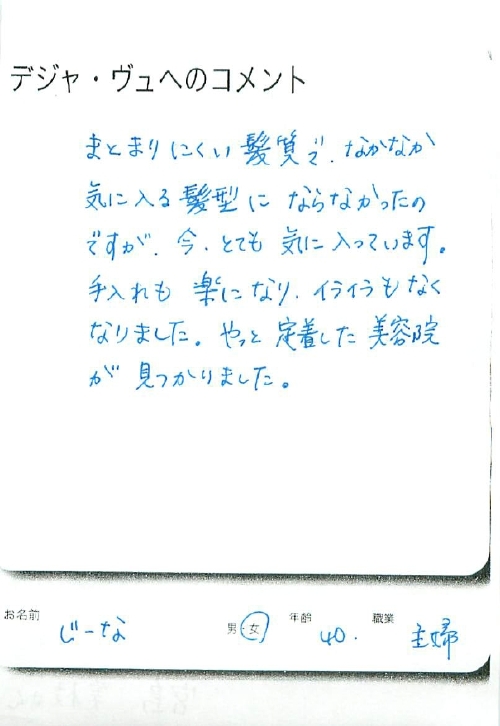 デジャ・ヴュへのコメント
まとまりにくい髪質で、なかなか
気に入る髪型にならなかったの
ですが、今、とても気に入っています。
手入れも楽になり、イライラもなく
なりました。やっと定着した美容院
が見つかりました。
お名前 じーな 男・女 年齢 40. 職業 主婦